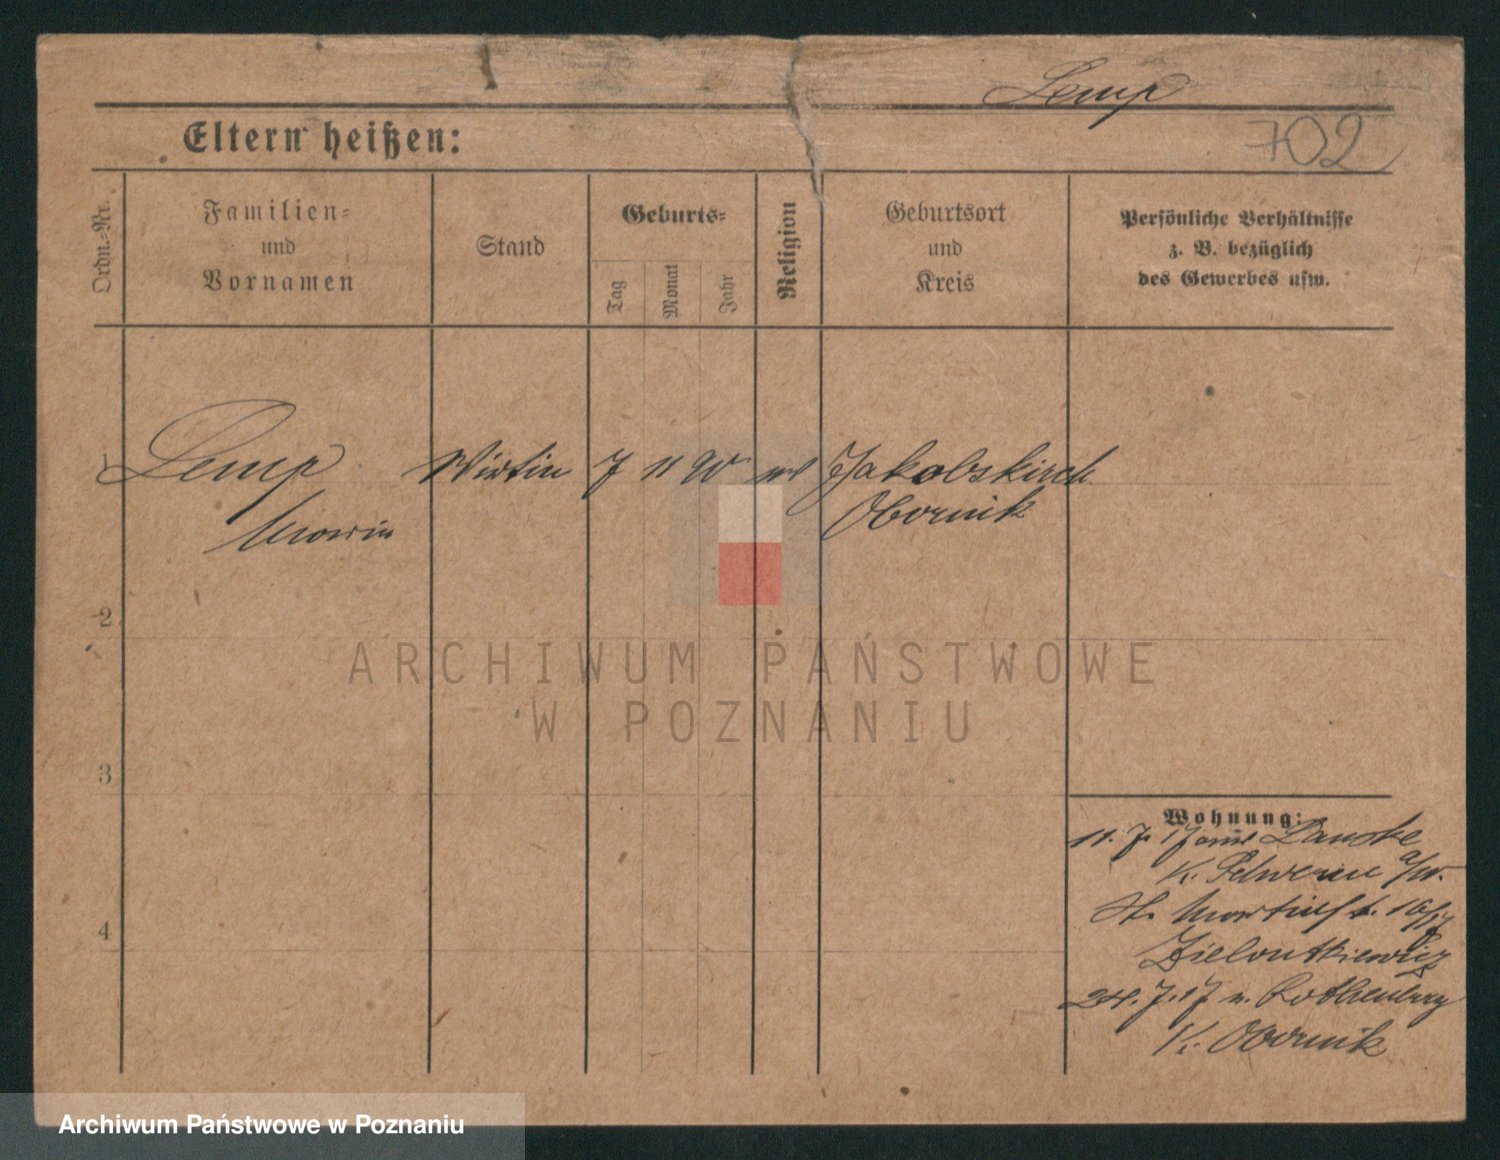 Lemp
702
Eltern heißen:
Ordn.-Nr.
Familien-
und
Vornamen
Stand
Geburts-
Tag
Monat
Jahr
Religion
Geburtsort
und
Kreis
Persönliche Verhältnisse
z. B. bezüglich
des Gewerbes usw.
1 Lemp Wirtin 7 11 90 Jakobskirch
Obornik
2
ARCHIWUM PAŃSTWOWE
W POZNANIU
3
Wohnung:
11. 7. 17
K. Schwerin a/W.
St. Martinstr. 16/17
24. 7. 17 n. Rothenburg
4
K. Obornik
Archiwum Państwowe w Poznaniu